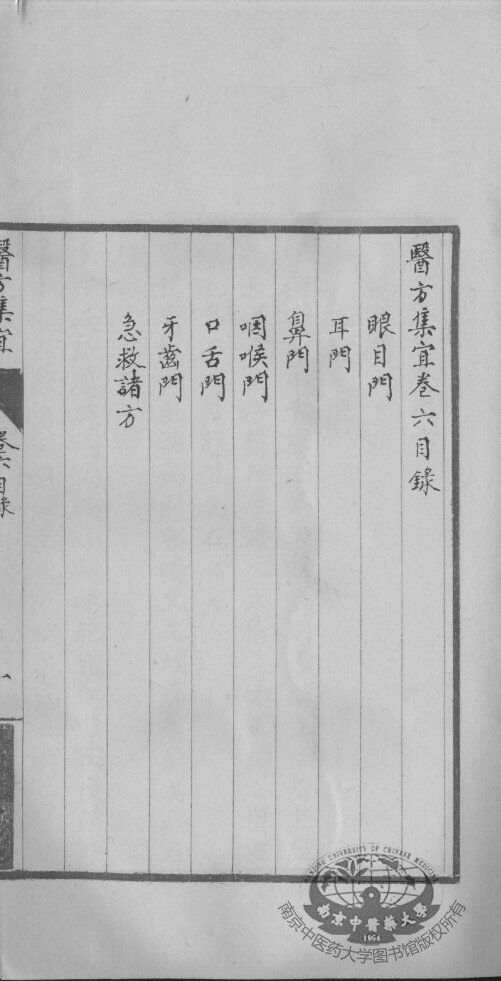 醫方集宜卷六目錄
眼目門
耳門
鼻門
咽喉門
口舌門
牙齒門
急救諸方
醫方集宜
卷六目錄
一
NANJING UNIVERSITY OF CHINESE MEDICINE
南京中醫藥大學
1954
南京中医药大学图书馆版权所有